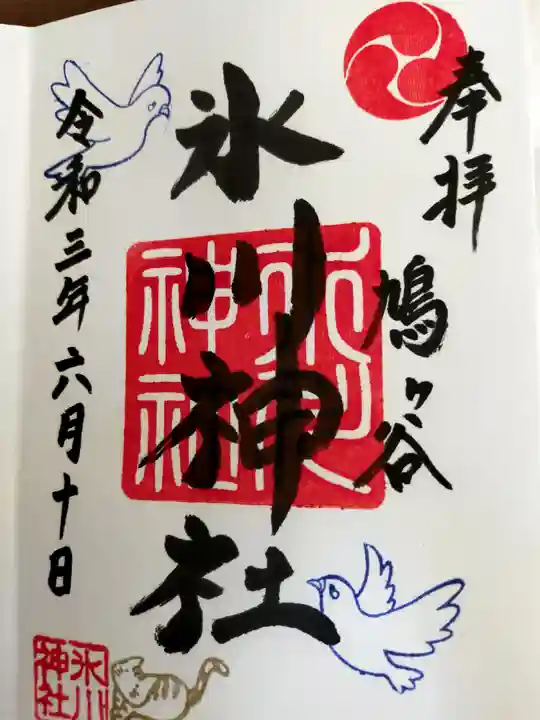 奉拝
鳩ヶ谷
氷川神社
氷川
神社
令和三年六月十日
氷川
神社